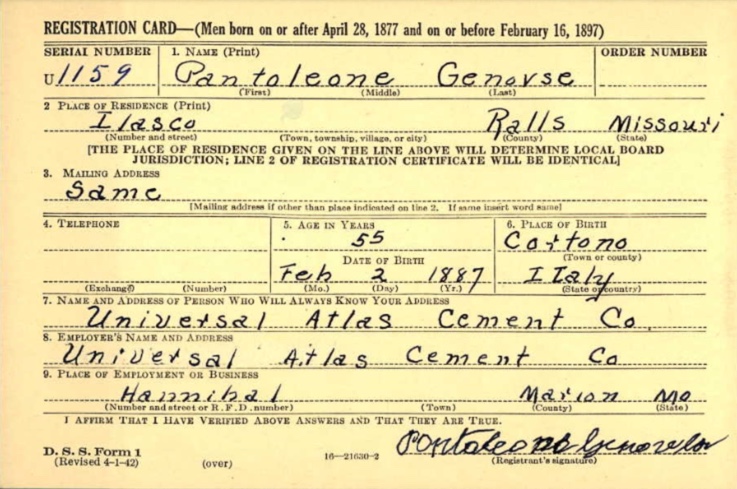 REGISTRATION CARD—(Men born on or after April 28, 1877 and on or before February 16, 1897)
SERIAL NUMBER 1. NAME (Print) ORDER NUMBER
U1159 Pantoleone Genovse
(First) (Middle) (Last)
2 PLACE OF RESIDENCE (Print)
Ilasco Ralls Missouri
(Number and street) (Town, township, village, or city) (County) (State)
[THE PLACE OF RESIDENCE GIVEN ON THE LINE ABOVE WILL DETERMINE LOCAL BOARD
JURISDICTION; LINE 2 OF REGISTRATION CERTIFICATE WILL BE IDENTICAL]
3. MAILING ADDRESS
Same
[Mailing address if other than place indicated on line 2. If same insert word same]
4. TELEPHONE 5. AGE IN YEARS 6. PLACE OF BIRTH
55 Cortono
DATE OF BIRTH (Town or county)
Feb 2 1887 ITaly
(Exchange) (Number) (Mo.) (Day) (Yr.) (State or country)
7. NAME AND ADDRESS OF PERSON WHO WILL ALWAYS KNOW YOUR ADDRESS
Universal Atlas Cement Co.
8. EMPLOYER'S NAME AND ADDRESS
Universal Atlas Cement Co
9. PLACE OF EMPLOYMENT OR BUSINESS
Hannibal Marion Mo
(Number and street or R. F. D. number) (Town) (County) (State)
I AFFIRM THAT I HAVE VERIFIED ABOVE ANSWERS AND THAT THEY ARE TRUE.
D. S. S. Form 1
(Revised 4-1-42) (over) 16—21630-2 (Registrant's signature)